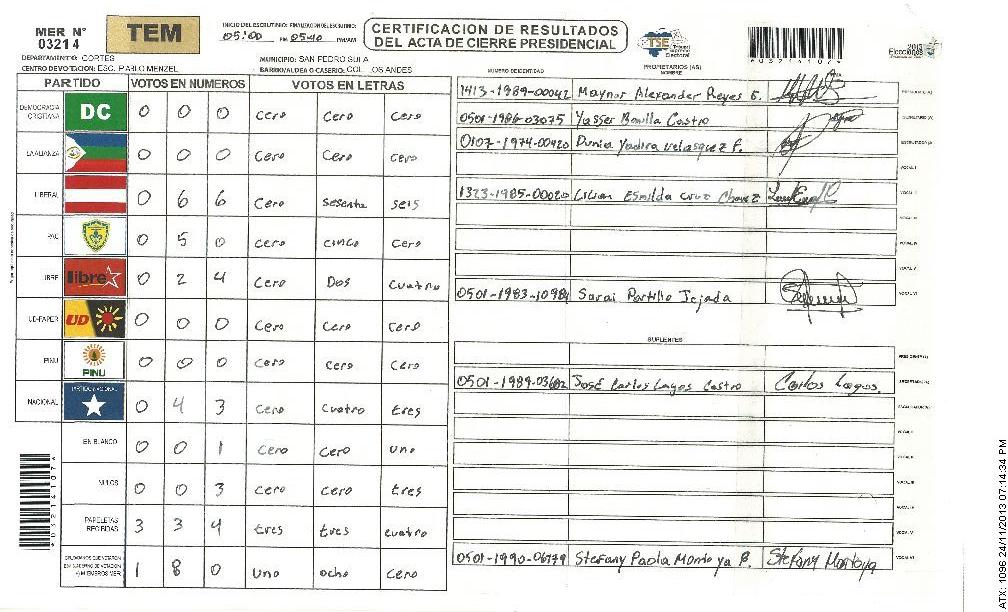 MER N° 03214
TEM
INICIO DEL ESCRUTINIO: FINALIZACION DEL ESCRUTINIO:
05:00 PM 05:40 PM/AM
CERTIFICACION DE RESULTADOS
DEL ACTA DE CIERRE PRESIDENCIAL
TSE Tribunal Supremo Electoral
2013 Elecciones
DEPARTAMENTO: CORTES
MUNICIPIO: SAN PEDRO SULA
CENTRO DE VOTACION: ESC. PABLO MENZEL
BARRIO/ALDEA O CASERIO: COL. LOS ANDES
PARTIDO VOTOS EN NUMEROS VOTOS EN LETRAS
DEMOCRACIA CRISTIANA DC 0 0 0 Cero Cero Cero
LA ALIANZA 0 0 0 Cero Cero Cero
LIBERAL 0 6 6 Cero Sesenta Seis
PAC 0 5 0 Cero Cinco Cero
LIBRE libre 0 2 4 Cero Dos Cuatro
UD-FAPER UD 0 0 0 Cero Cero Cero
PINU PINU 0 0 0 Cero Cero Cero
NACIONAL PARTIDO NACIONAL 0 4 3 Cero Cuatro tres
EN BLANCO 0 0 1 Cero Cero uno
NULOS 0 0 3 Cero Cero tres
PAPELETAS RECIBIDAS 3 3 4 tres tres cuatro
1 8 0 Uno ocho Cero
NUMERO DE IDENTIDAD
PROPIETARIOS (AS)
NOMBRE
1413-1989-00042 Maynor Alexander Reyes G. PRESIDENTE (A)
0501-1986-03075 Yasser Bonilla Castro SECRETARIO (A)
0107-1974-00420 Dunia Yadira Velasquez F. ESCRUTADOR (A)
VOCAL I
1323-1985-00020 Lilian Esmilda Cruz Chavez VOCAL II
VOCAL III
VOCAL IV
VOCAL V
0501-1983-10984 Sarai Portillo Tejada VOCAL VI
SUPLENTES
PRESIDENTE (A)
0501-1989-03682 José Carlos Lagos Castro Carlos Lagos. SECRETARIO (A)
ESCRUTADOR (A)
VOCAL I
VOCAL II
VOCAL III
VOCAL IV
VOCAL V
0501-1990-06779 Stefany Paola Montoya B. Stefany Montoya VOCAL VI
ATX: 1096 24/11/2013 07:14:34 PM